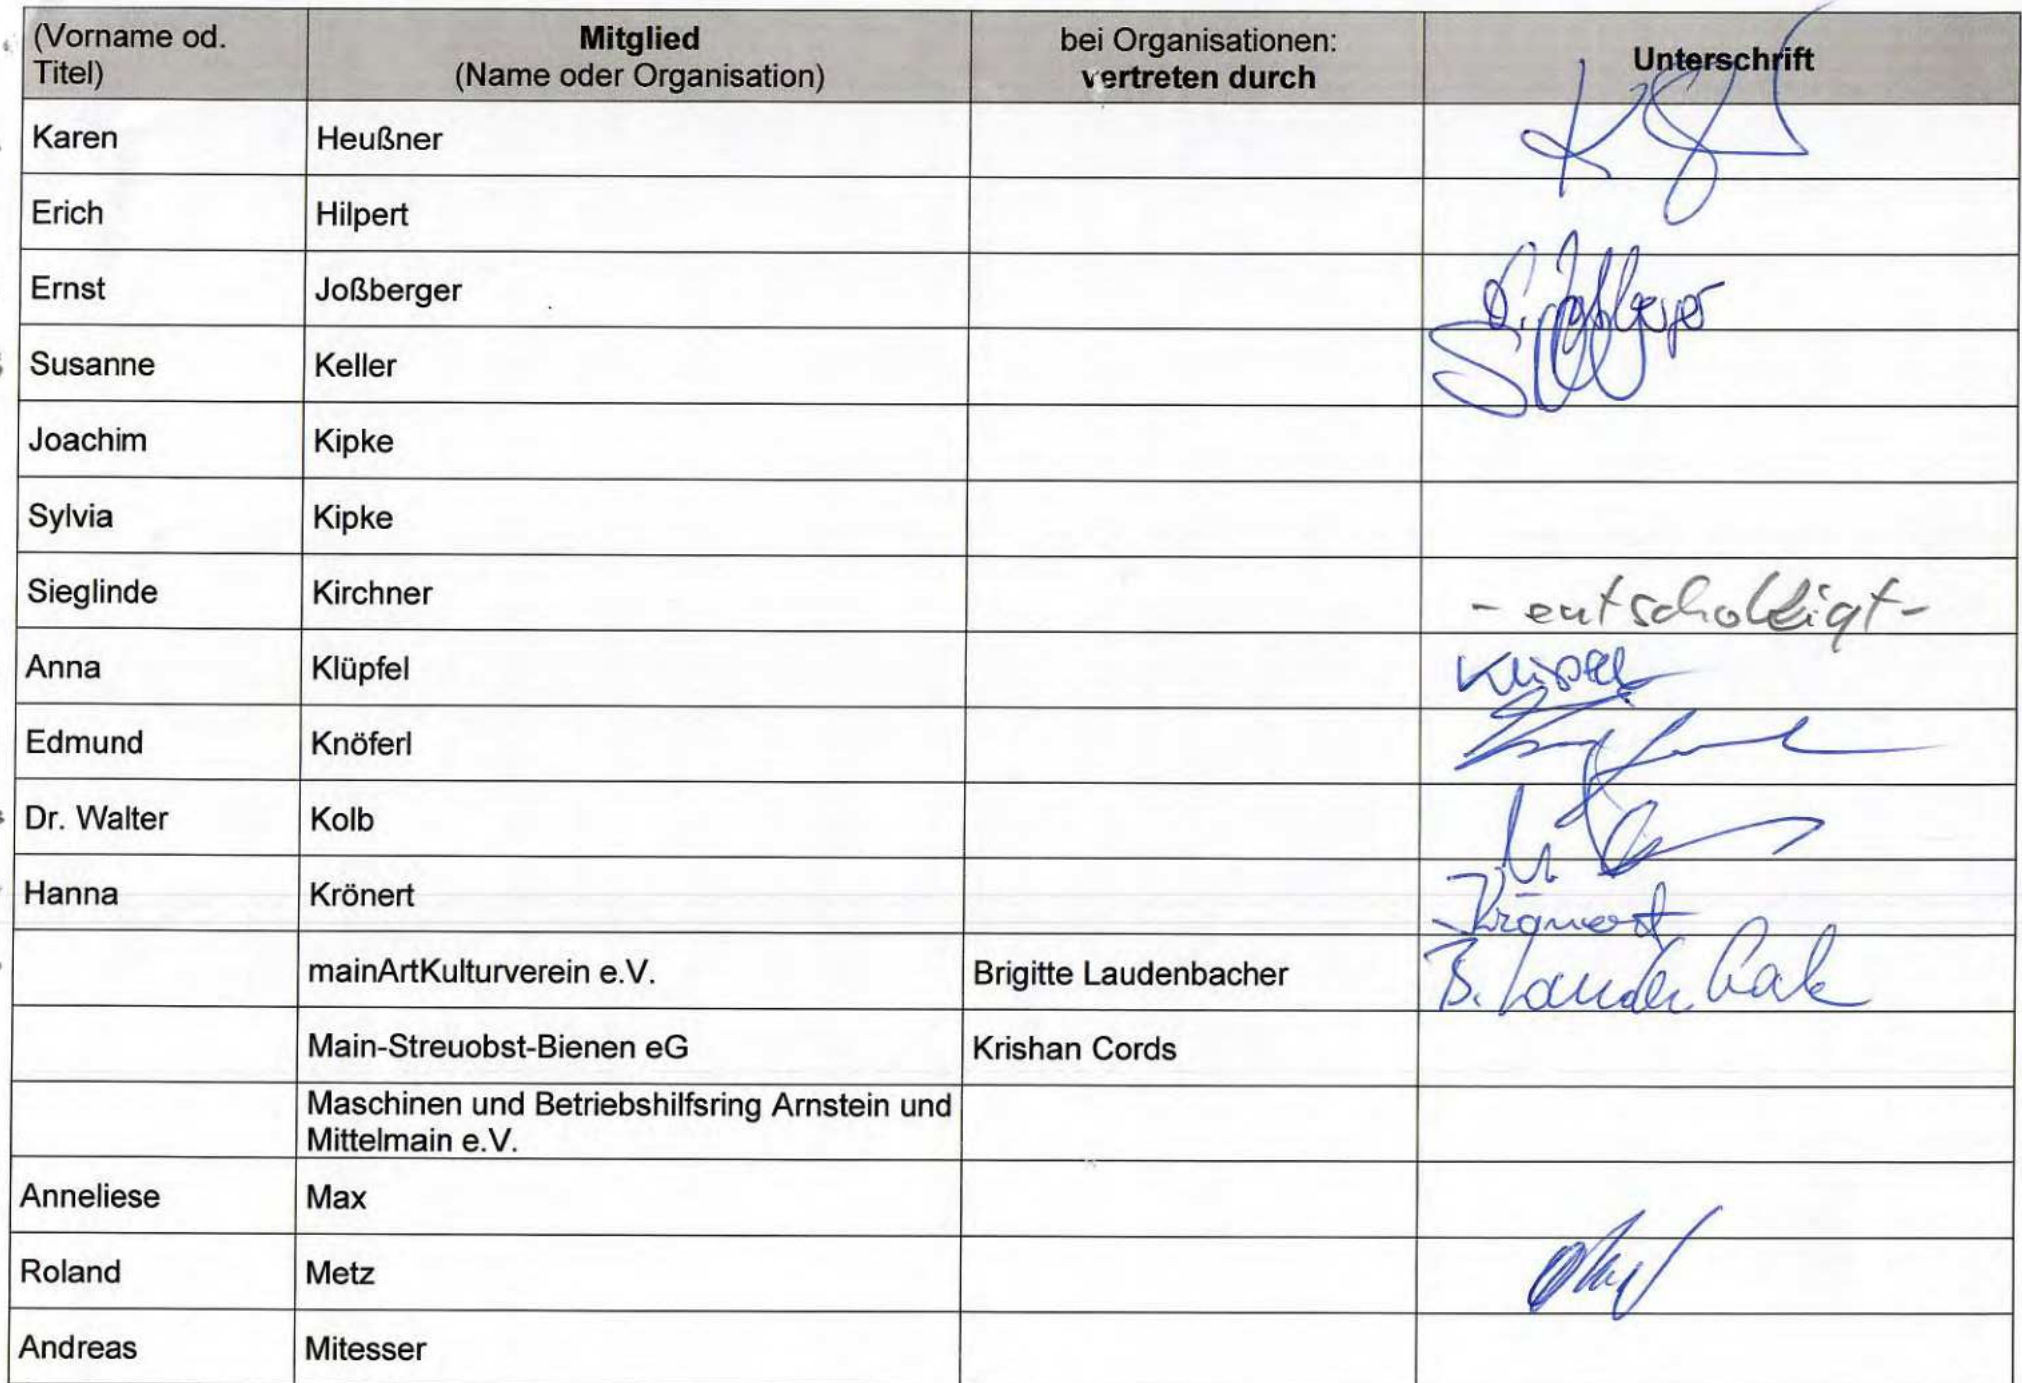 (Vorname od. Titel) Mitglied (Name oder Organisation) bei Organisationen: vertreten durch Unterschrift
Karen Heußner
Erich Hilpert
Ernst Joßberger
Susanne Keller
Joachim Kipke
Sylvia Kipke
Sieglinde Kirchner - entschuldigt -
Anna Klüpfel Klüpfel
Edmund Knöferl
Dr. Walter Kolb
Hanna Krönert Krönert
mainArtKulturverein e.V. Brigitte Laudenbacher B. Laudenbach
Main-Streuobst-Bienen eG Krishan Cords
Maschinen und Betriebshilfsring Arnstein und
Mittelmain e.V.
Anneliese Max
Roland Metz
Andreas Mitesser